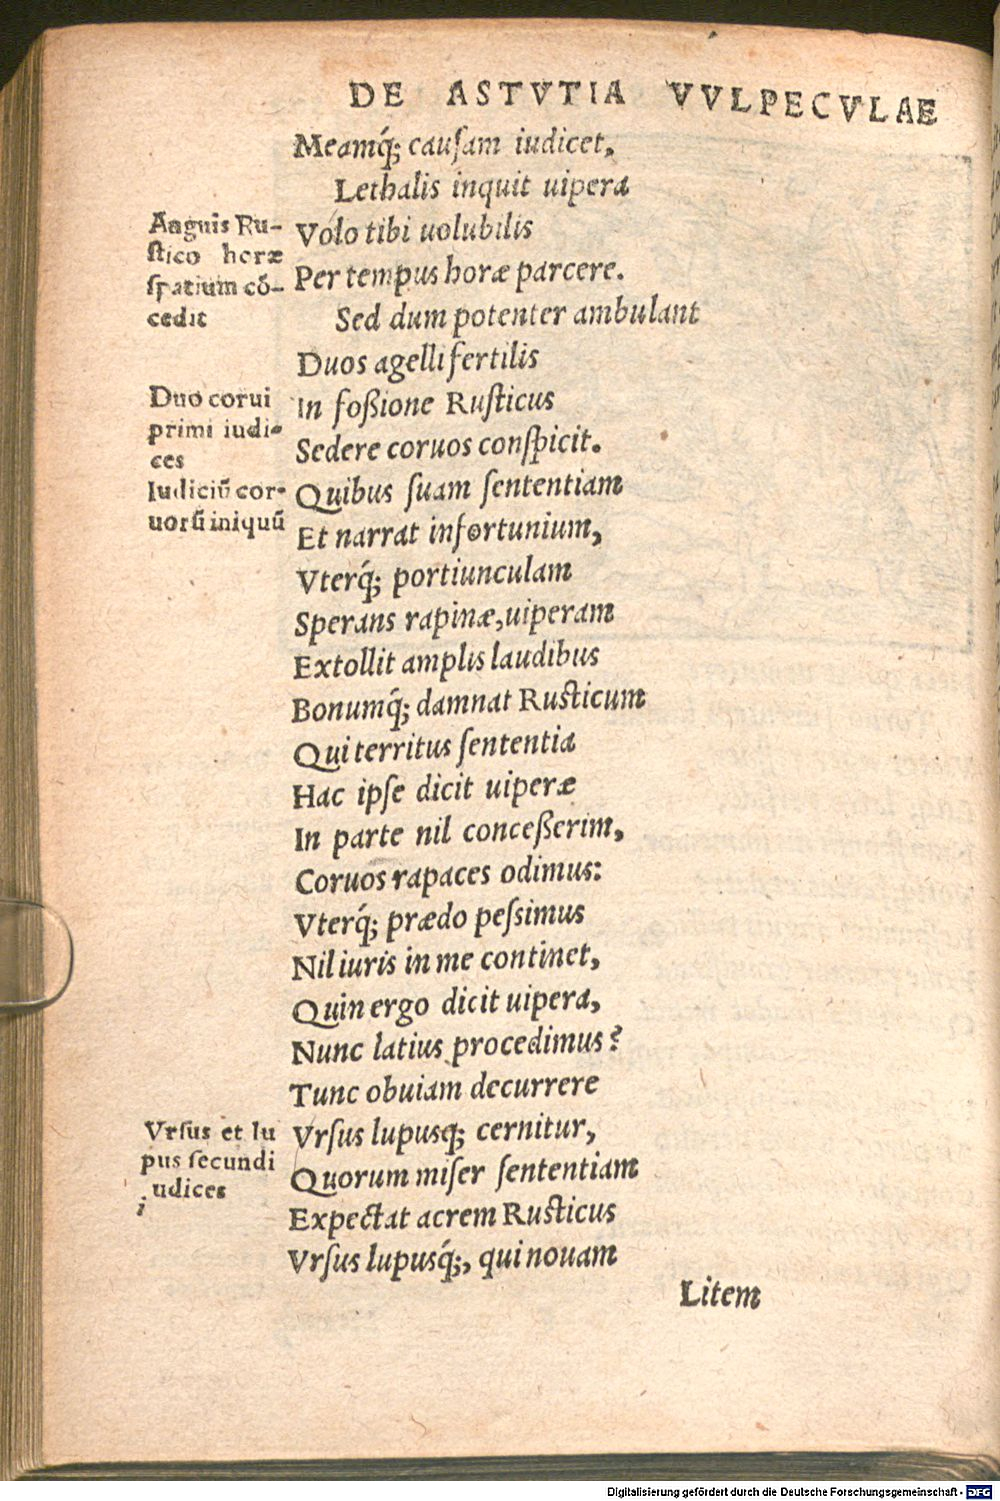 DE ASTVTIA VVLPECVLAE
Meamq́; cauſam iudicet,
Lethalis inquit uipera
Anguis Ru-
ſtico horæ
ſpatium cō-
cedit
Volo tibi uolubilis
Per tempus horæ parcere.
Sed dum potenter ambulant
Duos agelli fertilis
Duo corui
primi iudi-
ces
Iudiciū cor-
uorū iniquū
In foßione Ruſticus
Sedere coruos conſpicit.
Quibus ſuam ſententiam
Et narrat infortunium,
Vterq́; portiunculam
Sperans rapinæ, uiperam
Extollit amplis laudibus
Bonumq́; damnat Ruſticum
Qui territus ſententia
Hac ipſe dicit uiperæ
In parte nil conceßerim,
Coruos rapaces odimus:
Vterq́; prædo peſsimus
Nil iuris in me continet,
Quin ergo dicit uipera,
Nunc latius procedimus?
Tunc obuiam decurrere
Vrſus et lu
pus ſecundi
iudices
Vrſus lupusq; cernitur,
Quorum miſer ſententiam
Expectat acrem Ruſticus
Vrſus lupusq́;, qui nouam
Litem
Digitalisierung gefördert durch die Deutsche Forschungsgemeinschaft - DFG